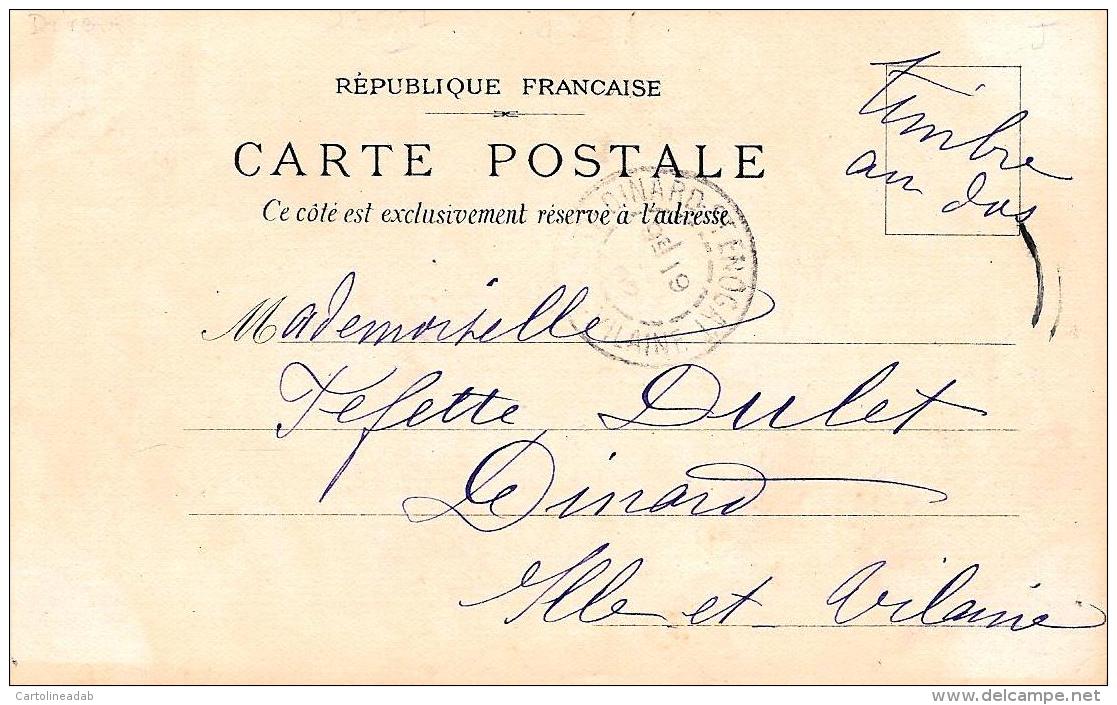 RÉPUBLIQUE FRANCAISE
CARTE POSTALE
Ce côté est exclusivement réservé à l'adresse
timbre
au dos
DINARD-ST ENOGAT
VILAINE
19
Mademoiselle
Fefette Dulet
Dinard
Ille et Vilaine
Cartolineadab
delcampe.net